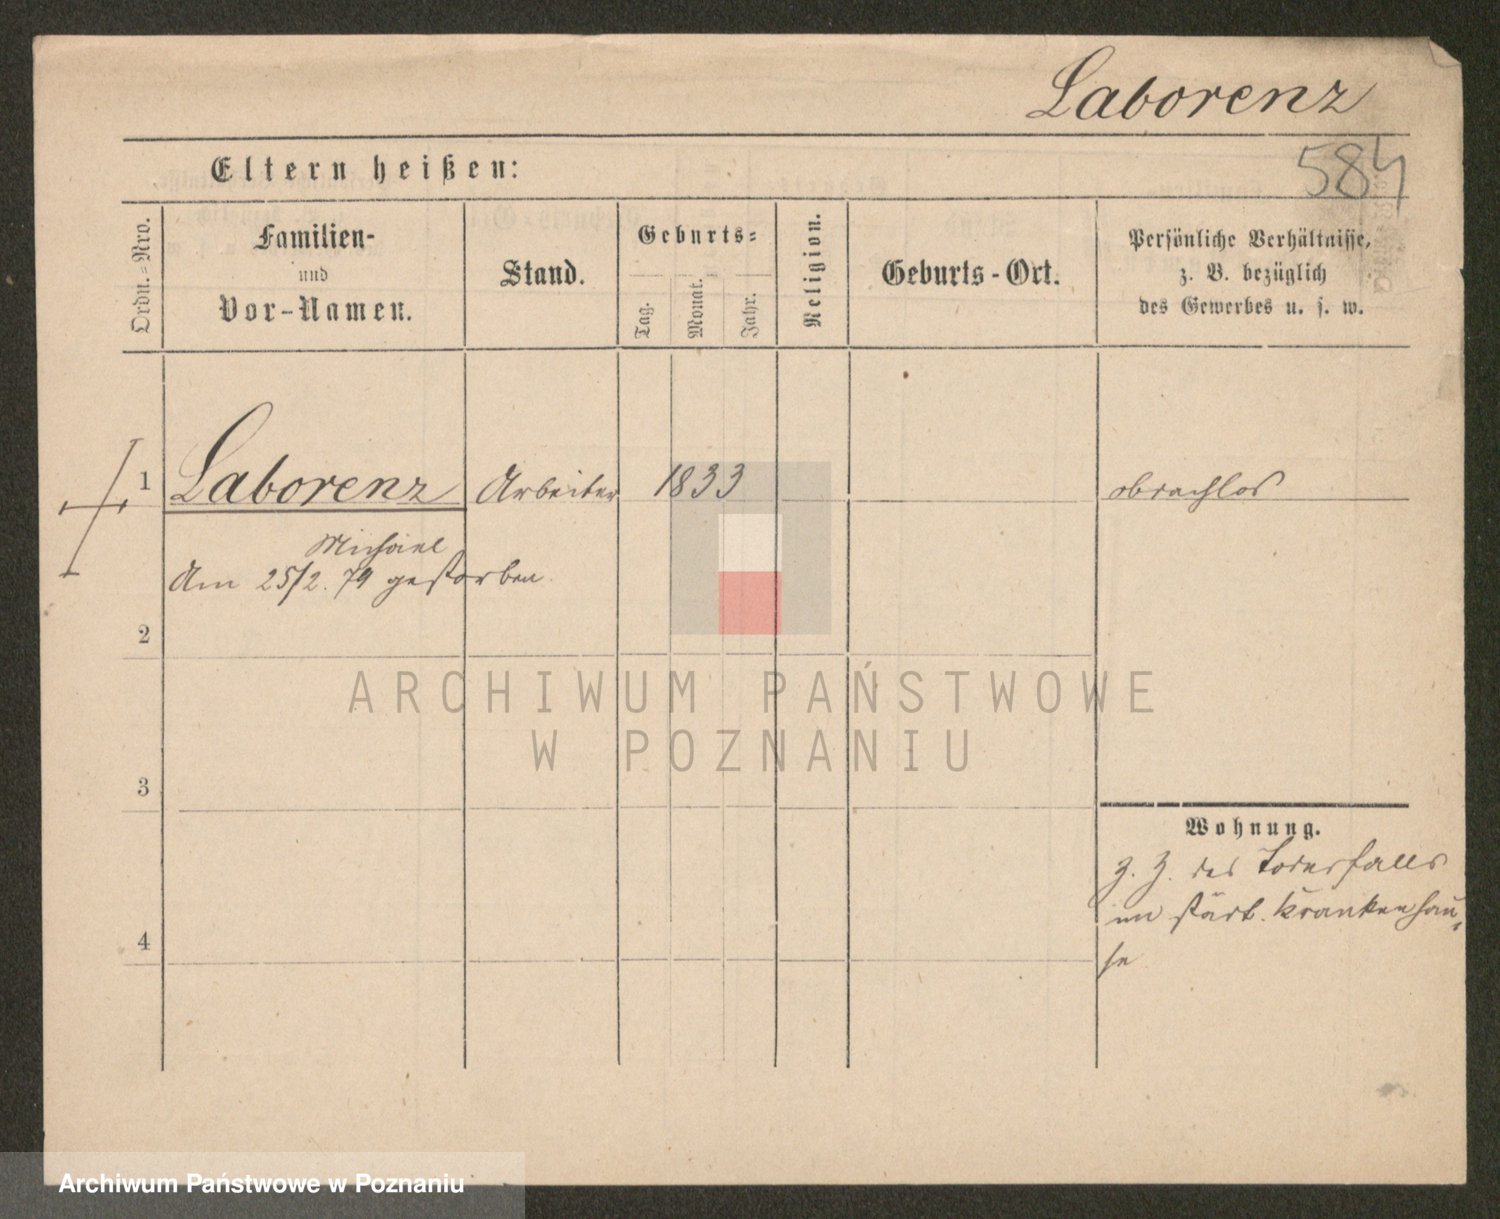 Laborenz
584
Eltern heißen:
Ordn.-Nro.
Familien-
und
Vor-Namen.
Stand.
Geburts-
Tag.
Monat.
Jahr.
Religion.
Geburts-Ort.
Persönliche Verhältnisse,
z. B. bezüglich
des Gewerbes u. s. w.
1 Laborenz Arbeiter 1833 obdachlos
Michael
Am 25/2. 79 gestorben.
2
3
4
Wohnung.
z. Z. des Todesfalls
im städt. Krankenhau-
se
ARCHIWUM PAŃSTWOWE
W POZNANIU
Archiwum Państwowe w Poznaniu